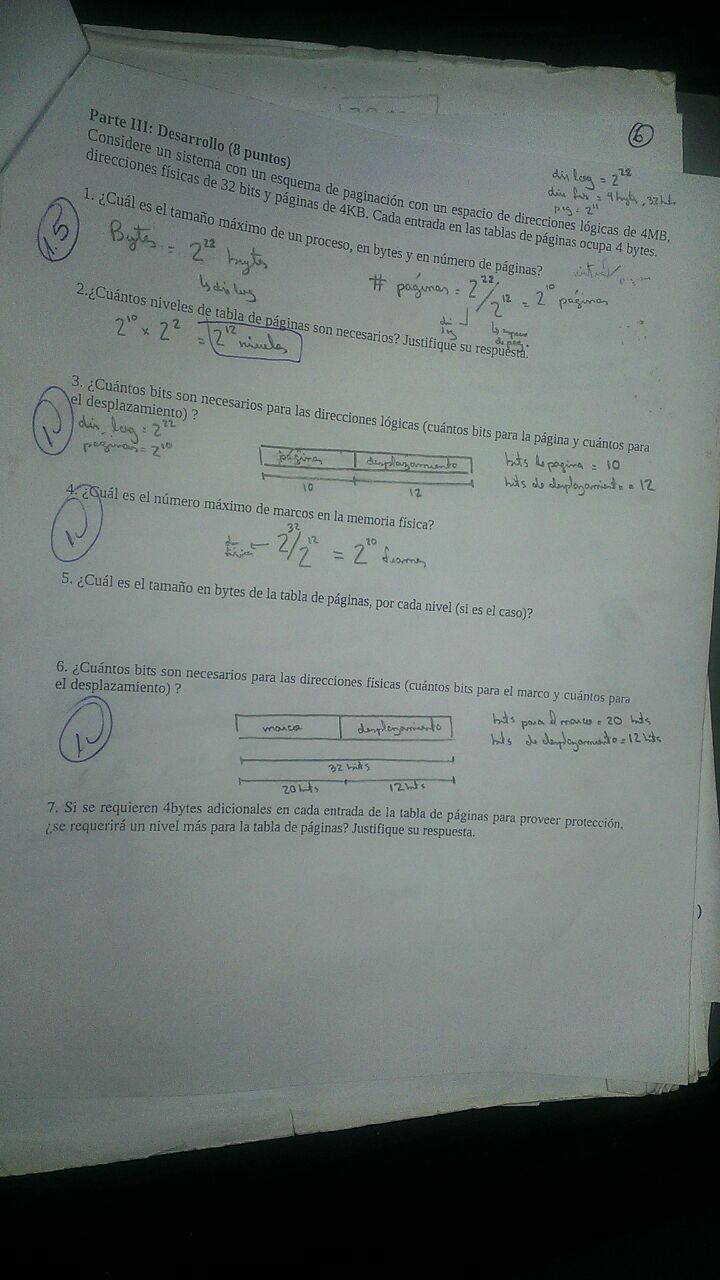 6
Parte III: Desarrollo (8 puntos)
Considere un sistema con un esquema de paginación con un espacio de direcciones lógicas de 4MB,
direcciones físicas de 32 bits y páginas de 4KB. Cada entrada en las tablas de páginas ocupa 4 bytes.
dir log = 2^22
dir fis = 4 bytes, 32 bits
1. ¿Cuál es el tamaño máximo de un proceso, en bytes y en número de páginas?
1.5
Bytes = 2^22 bytes
dir log
# páginas = 2^22/2^12 = 2^10 páginas
2.¿Cuántos niveles de tabla de páginas son necesarios? Justifique su respuesta.
2^10 x 2^2 = 2^12 niveles
3. ¿Cuántos bits son necesarios para las direcciones lógicas (cuántos bits para la página y cuántos para
el desplazamiento) ?
dir. log = 2^22
paginas = 2^10
páginas desplazamiento
10 12
bits de pagina = 10
bits de desplazamiento = 12
4. ¿Cuál es el número máximo de marcos en la memoria física?
2^32/2^12 = 2^20 frames
5. ¿Cuál es el tamaño en bytes de la tabla de páginas, por cada nivel (si es el caso)?
6. ¿Cuántos bits son necesarios para las direcciones físicas (cuántos bits para el marco y cuántos para
el desplazamiento) ?
marco desplazamiento
32 bits
20 bits 12 bits
bits para el marco = 20 bits
bits de desplazamiento = 12 bits
7. Si se requieren 4bytes adicionales en cada entrada de la tabla de páginas para proveer protección,
¿se requerirá un nivel más para la tabla de páginas? Justifique su respuesta.